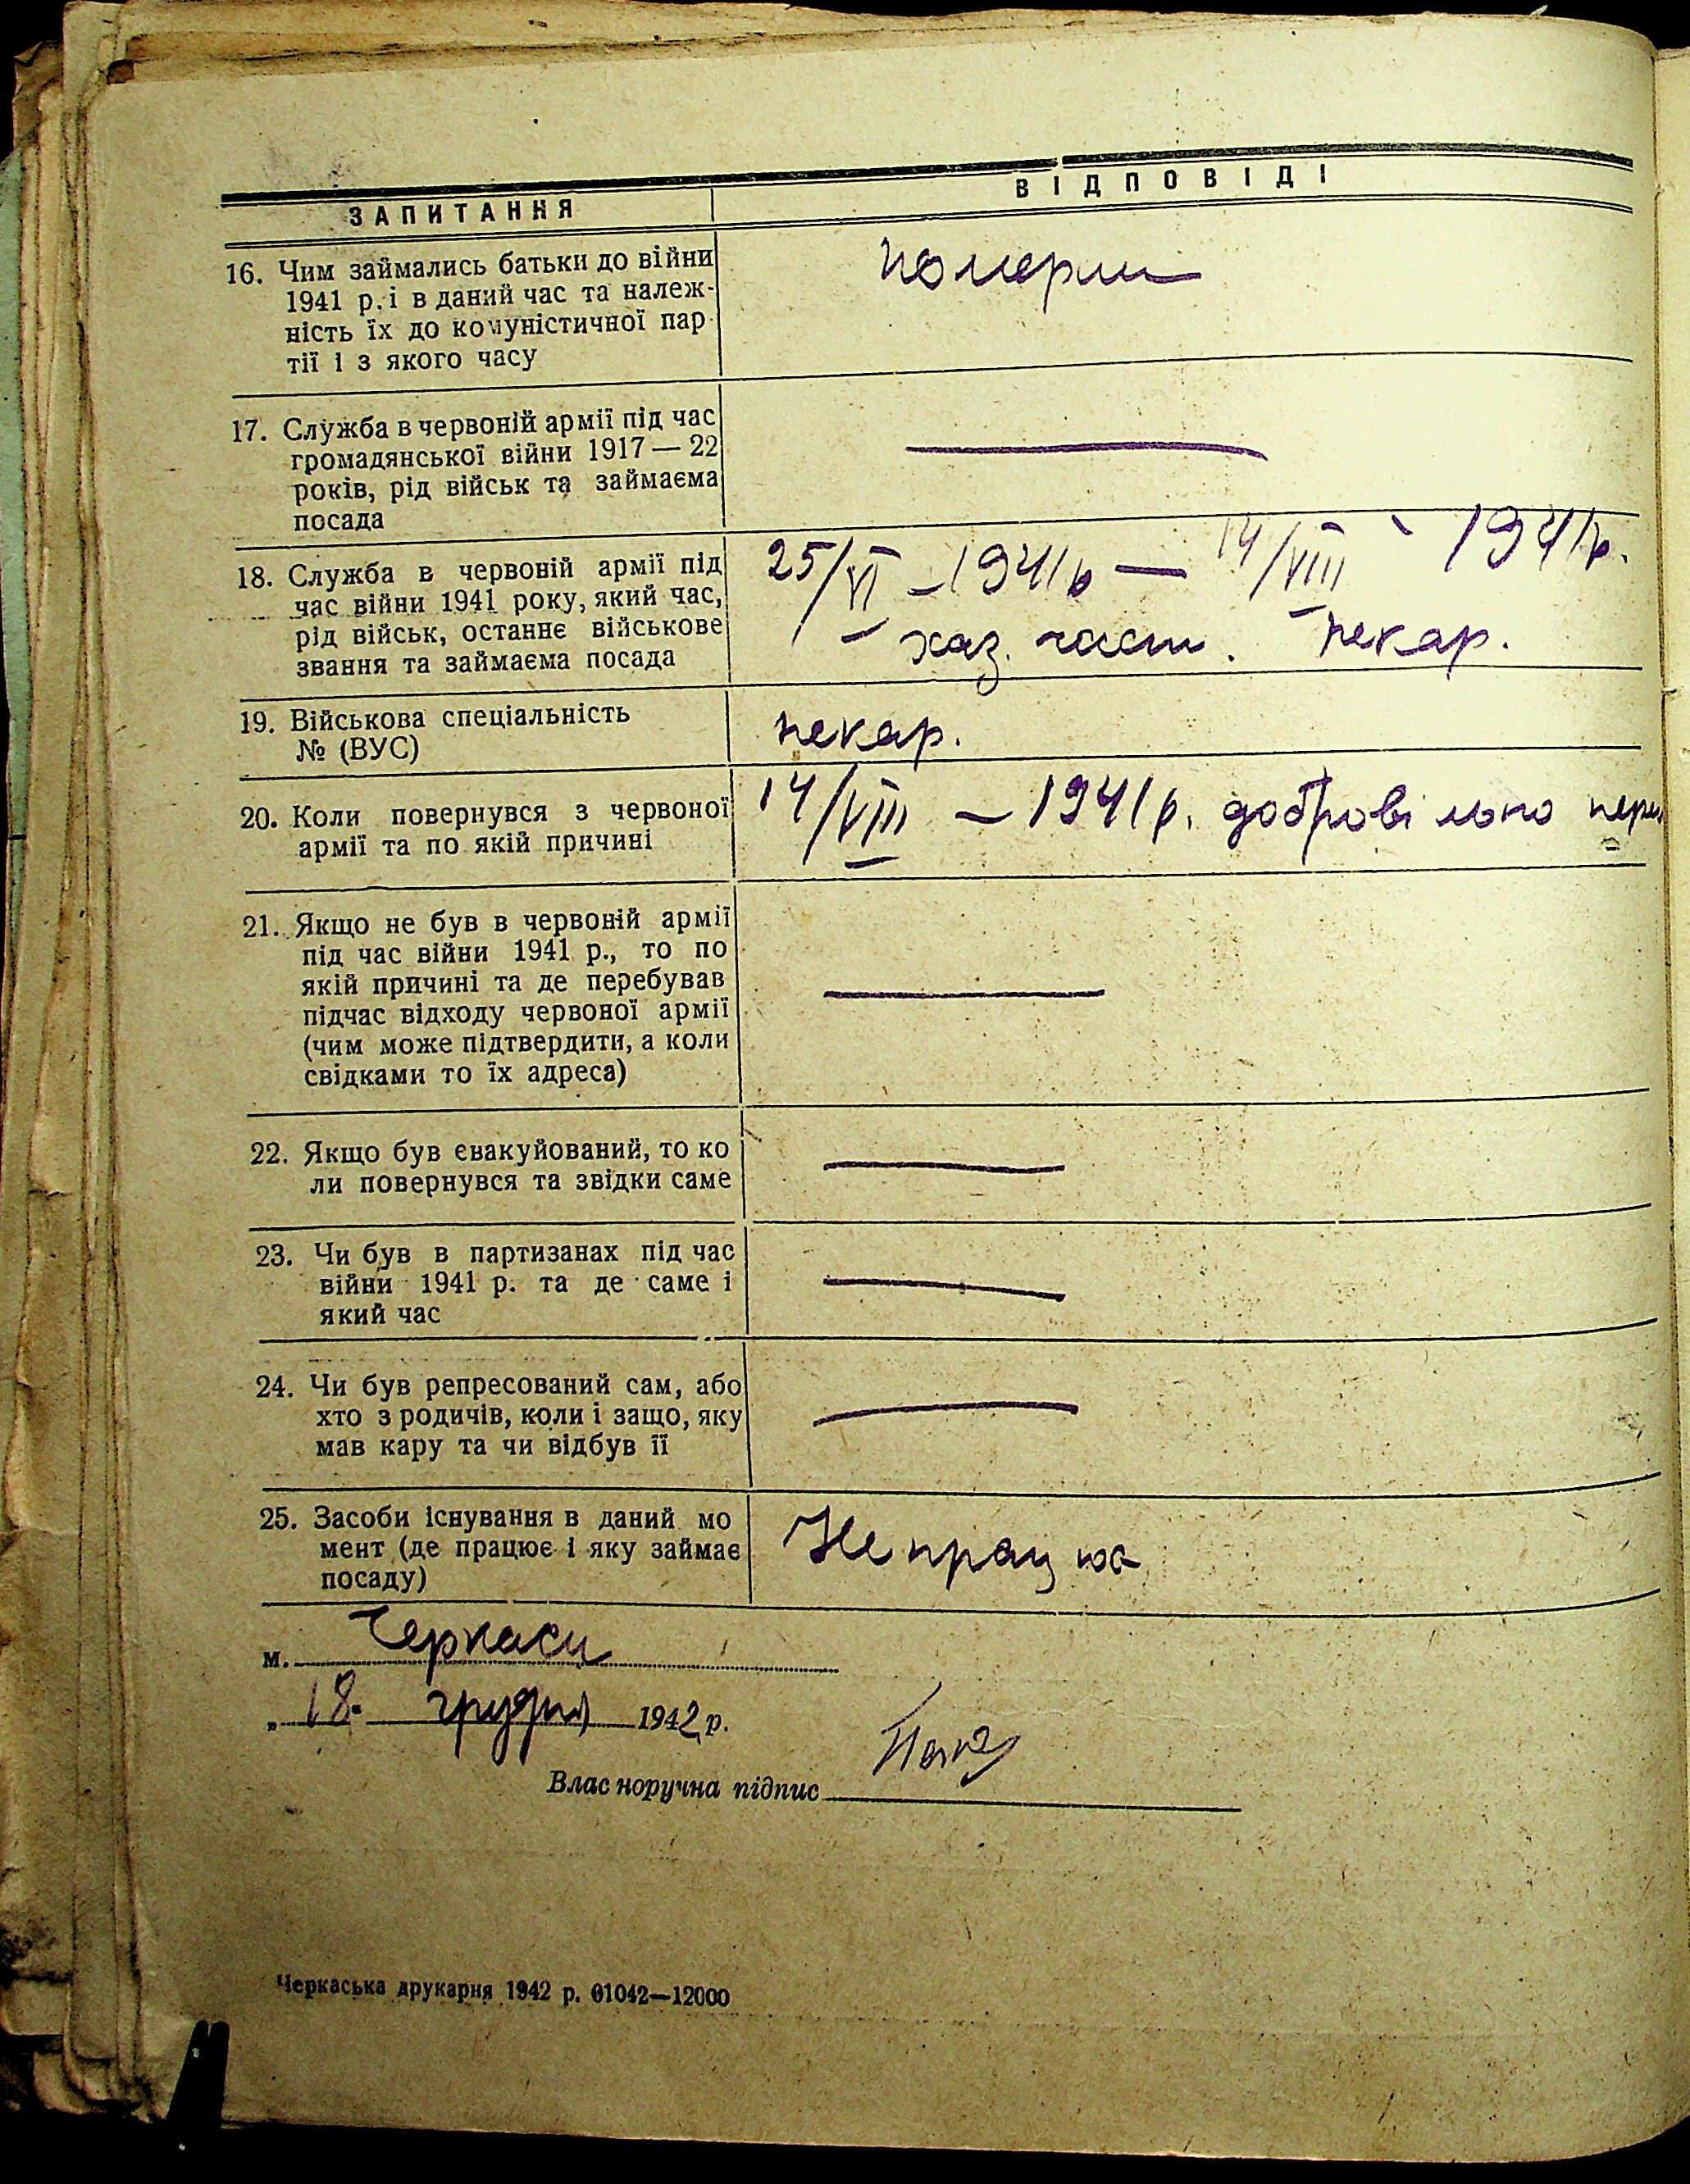 ЗАПИТАННЯ
ВІДПОВІДІ
16. Чим займались батьки до війни
1941 р. і в даний час та належ-
ність їх до комуністичної пар
тії і з якого часу
померли
17. Служба в червоній армії під час
громадянської війни 1917 — 22
років, рід військ та займаєма
посада
18. Служба в червоній армії під
час війни 1941 року, який час,
рід військ, останнє військове
звання та займаєма посада
25/VI – 1941р — 14/VIII - 1941р.
– хаз. част. – пекар.
19. Військова спеціальність
№ (ВУС)
пекар.
20. Коли повернувся з червоної
армії та по якій причині
14/VIII – 1941р. добровільно
21. Якщо не був в червоній армії
під час війни 1941 р., то по
якій причині та де перебував
підчас відходу червоної армії
(чим може підтвердити, а коли
свідками то їх адреса)
22. Якщо був евакуйований, то ко
ли повернувся та звідки саме
23. Чи був в партизанах під час
війни 1941 р. та де саме і
який час
24. Чи був репресований сам, або
хто з родичів, коли і защо, яку
мав кару та чи відбув її
25. Засоби існування в даний мо
мент (де працює і яку займає
посаду)
Не працюю
м. Черкаси
„ 18. грудня 1942 р.
Власноручна підпис
Черкаська друкарня 1942 р. 01042—12000